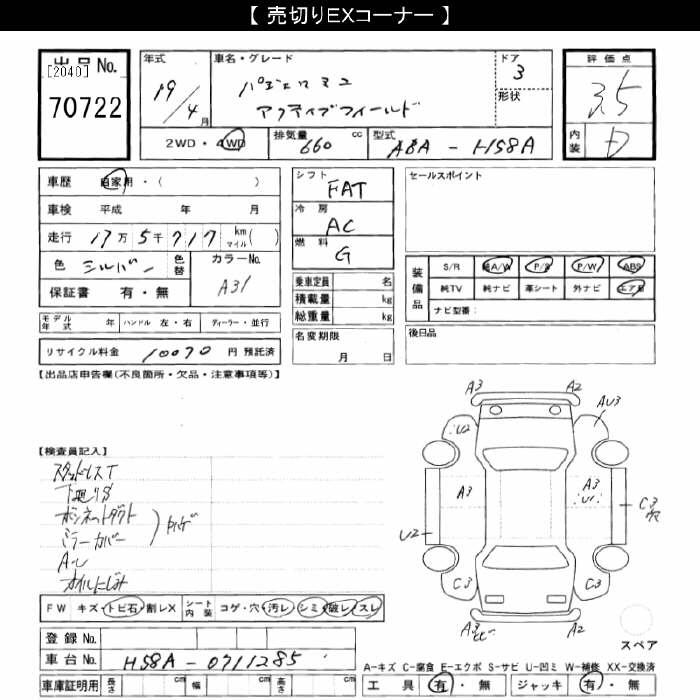 【 売切りEXコーナー 】
出品No.
[2040]
70722
年式
19/4月
車名・グレード
パジェロミニ
アクティブフィールド
ドア
3
形状
評価点
3.5
内装
D
2WD・4WD
排気量 660 cc
型式 ABA - H58A
車歴 自家用・( )
車検 平成 年 月
走行 17万5千717 km マイル( )
色 シルバー
色替
カラーNo.
A31
保証書 有・無
シフト
FAT
冷房
AC
燃料
G
乗車定員 名
積載量 kg
総重量 kg
名変期限
月 日
セールスポイント
装備品
S/R 純A/W P/S P/W ABS
純TV 純ナビ 革シート 外ナビ エアB
ナビ型番:
後日品
モデル年式 年 ハンドル 左・右 ディーラー・並行
リサイクル料金 10070 円 預託済
【出品店申告欄(不良箇所・欠品・注意事項等)】
【検査員記入】
スタッドレスT
下廻りS
ボンネットダクト
ミラーカバー
オイルにじみ
A3
A2
U2
AU3
A3
A3
U1
C3
穴
U2
C3
C3
A3
A2
スペア
FW キズ・トビ石・割レX シート内装 コゲ・穴・汚レ・シミ・破レ・スレ
登録No.
車台No. H58A-0711285
車庫証明用 長さ cm 幅 cm 高さ cm
A-キズ C-腐食 E-エクボ S-サビ U-凹ミ W-補修 XX-交換済
工具 有・無 ジャッキ 有・無